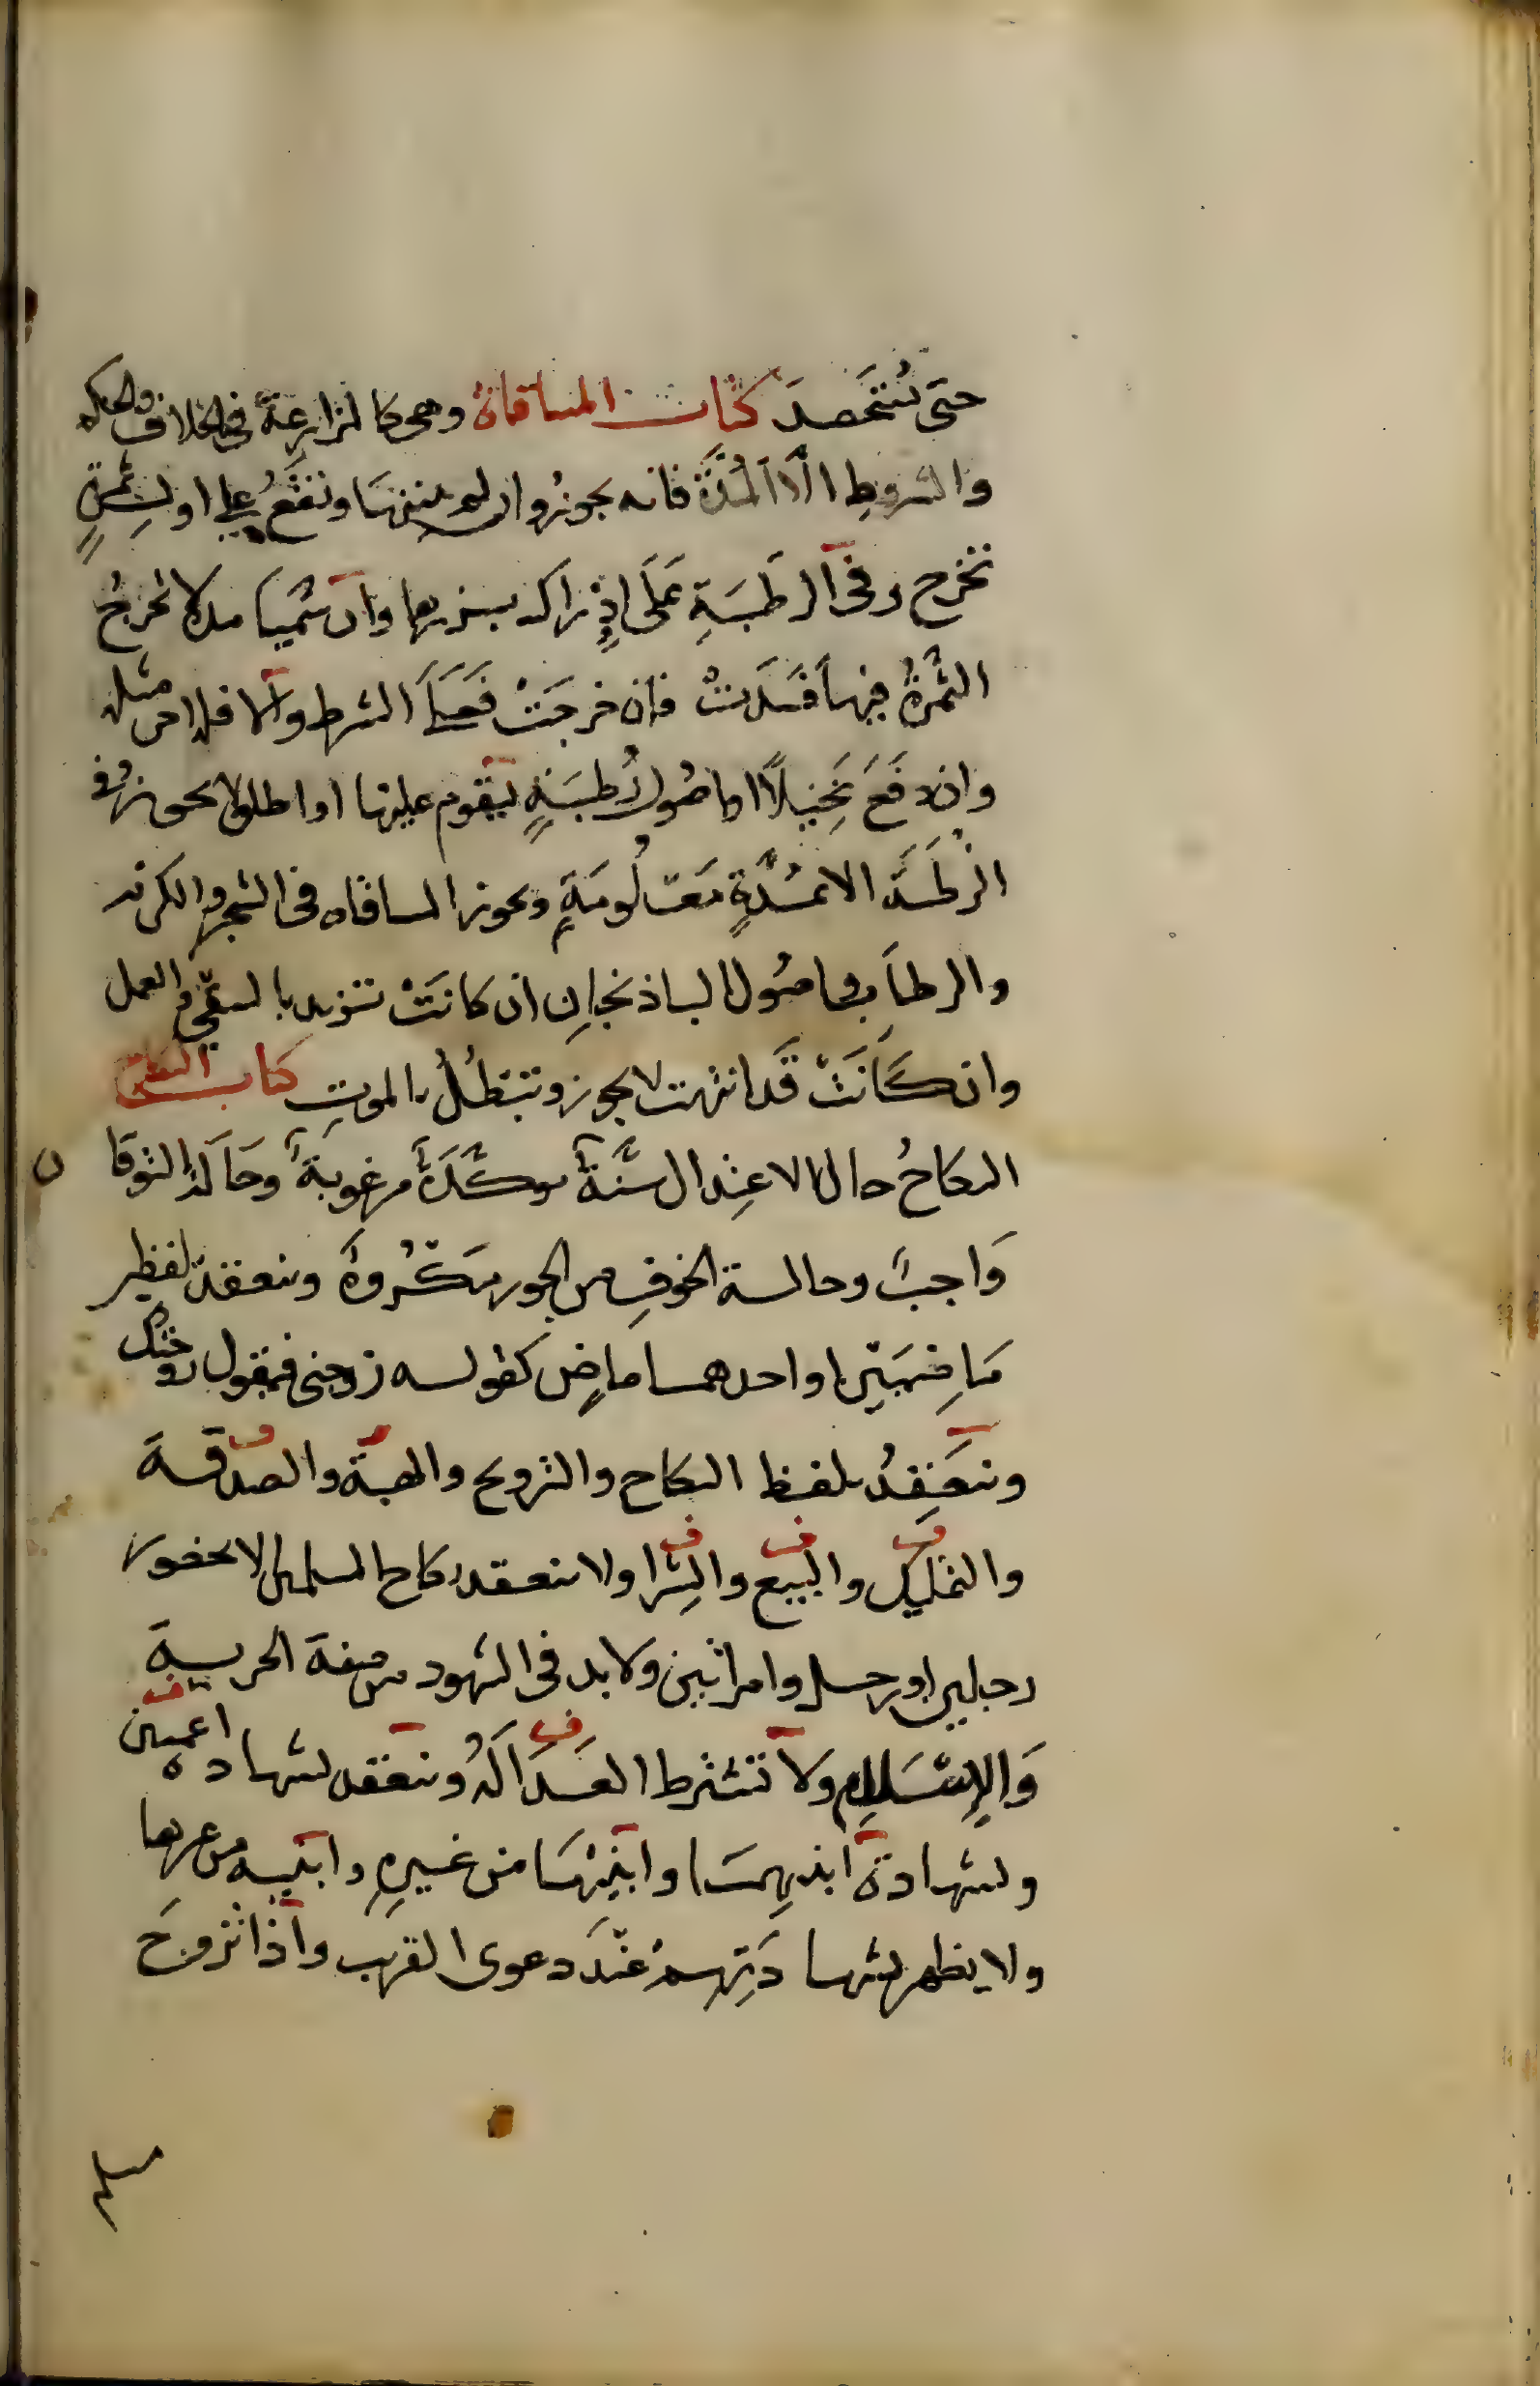 حتى تُستَحصدَ كتاب المساقاة وهى كالمزارعة فى الخلاف والحكم
والشروط الّا المُدَّةَ فانه يجوز وان لم يبينها وتقَعُ على اول ثمرةٍ
تخرج وفى الرطبَةِ عَلى ادراك بذرها وان سَمَّيَا مدة لا تخرجُ
الثمرةُ فيها فَسَدَتْ فان خرجَتْ فعلى الشرط والا فله اجر مثله
وان دَفَعَ نَخِيلًا او اصُولَ رُطبَةٍ ليقوم عليها او اطلق لا يجوز فى
الرطبَة الا بمُدَّةٍ مَعلُومَةٍ وتجوز المساقاه فى الشجر والكرم
والرطاب واصُول الباذنجان ان كانَتْ تزيد بالسقي والعمل
وان كَانَتْ قَد انتهت لا يجوز وتبطُلُ بالموتِ كتاب النكاح
النكاحُ حالة الاعتِدال سُنَّةٌ موكَّدَةٌ مرغوبَةٌ وحَالة التوقان
وَاجبٌ وحالة الخوفِ من الجور مَكرُوهٌ وينعقد بلفظين
مَاضِيَيْنِ او احدهما ماضٍ كقوله زوجنى فيقول زوجتك
وينعَقِدُ بلفظ النكاح والتزويج والهبة والصدقة
والتمليك والبيع والشِرا ولا ينعقد نكاح المسلمين الا بحضور
رجلين او رجل وامراتين ولا بد فى الشهود من صفة الحرية
وَالاِسْلَامِ ولا تشترط العَدَالَة وينعقد بشهادة اعميين
وبشهادة ابنيهِمَا وابنِهَا من غيرِهِ وابنِه من غيرها
ولا يظهر بشهادَتِهِم عندَ دعوى القريب واذا تزوجَ
مسلم